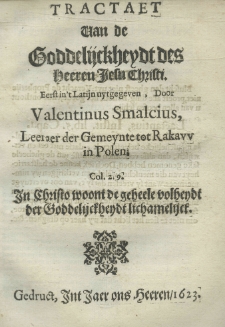 TRACTAET
Van de
Goddelijckheydt des
Heeren Jesu Christi.
Eerst in't Latijn uytgegeven, Door
Valentinus Smalcius,
Leeraer der Gemeynte tot Rakavv
in Polen.
Col. 2. 9.
In Christo woont de geheele volheydt
der Goddelijckheydt lichamelijck.
Gedruct, Int Jaer ons Heeren/1623.